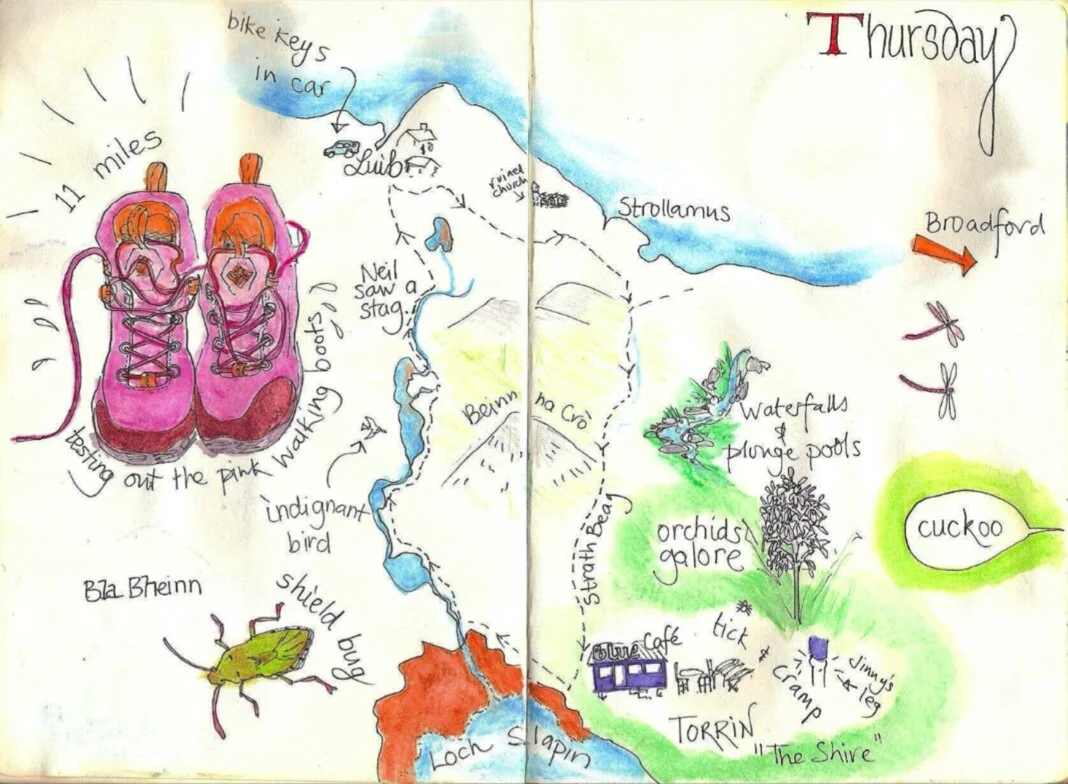 Thursday
bike keys
in car
11 miles
Luib
ruined
church
Strollamus
Broadford
Neil
saw a
stag.
testing out the pink walking boots
Beinn na Crò
waterfalls
&
plunge pools
indignant
bird
orchids
galore
cuckoo
Strath Beag
Bla Bheinn
shield bug
Blue Café
tick
&
cramp
Jinny's
leg
TORRIN
"The Shire"
Loch Slapin